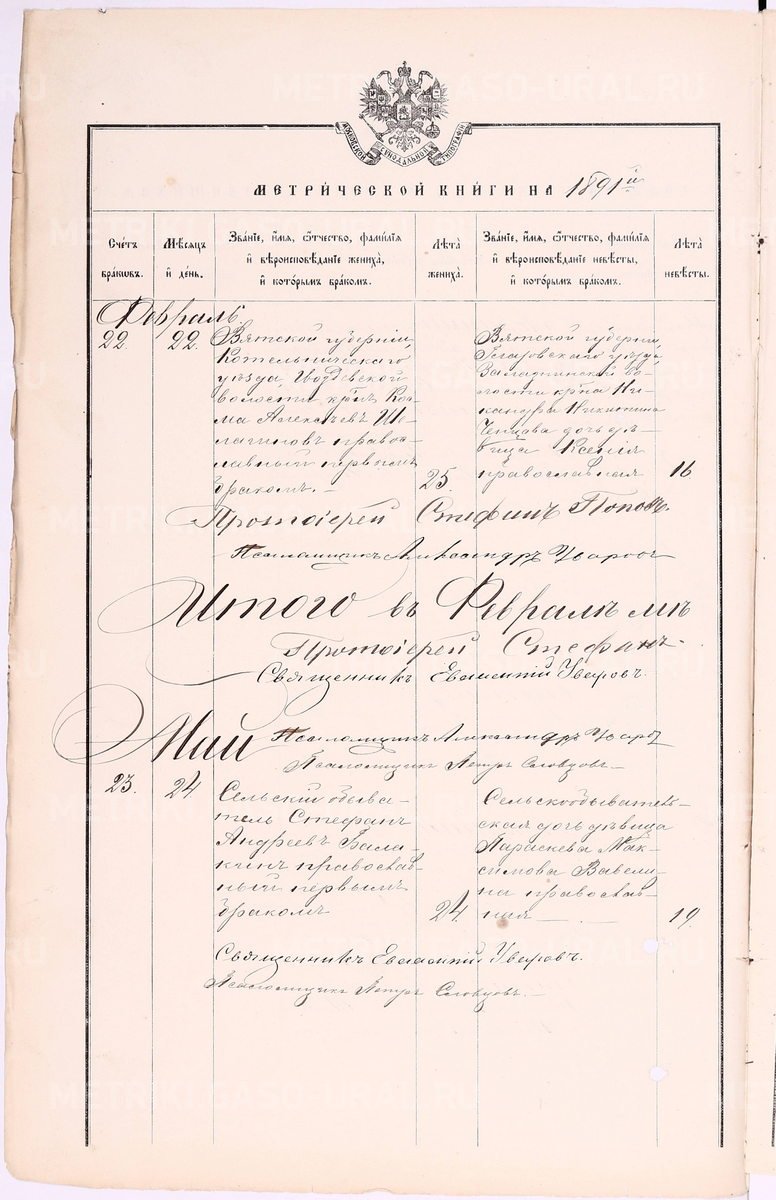 МОСКОВСКОЙ СѴНОДАЛЬНОЙ ТИПОГРАФІИ
МЕТРИ́ЧЕСКОЙ КНИ́ГИ НА 1891 й
Сче́тъ бра́ковъ.
Мѣ́сяцъ и де́нь.
Зва́ніе, и́мя, ѻ҆́тчество, фами́лія
и҆ вѣроисповѣ́даніе жениха̀,
и҆ кото́рымъ бра́комъ.
Лѣ́та жениха̀.
Зва́ніе, и́мя, ѻ҆́тчество, фами́лія
и҆ вѣроисповѣ́даніе невѣ́сты,
и҆ кото́рымъ бра́комъ.
Лѣ́та невѣ́сты.
Февраль.
22. 22.
Вятской губерніи,
Котельническаго
уѣзда,
волости кр-нъ Коз-
ма Алексѣевъ
православ-
славный первымъ
бракомъ. —
25.
Вятской губерніи,
уѣзда,
во-
лости кр-на Ни-
кандра Никитина
дочь дѣ-
вица Ксенія
православная
16
Протоіерей Стефанъ Поповъ.
Псаломщикъ Александръ
Итого въ Февралѣ м-цѣ
Протоіерей Стефанъ
Священникъ Евлампій Уваровъ.
Май
Псаломщикъ Александръ
Псаломщикъ Петръ Словцовъ.
23. 24.
Сельскій обыва-
тель Стефанъ
Андреевъ Бала-
кинъ православ-
ный первымъ
бракомъ
24.
Сельскообыватель-
ская дочь дѣвица
Параскева Мак-
симова Вавели-
на православ-
ная —
19.
Священникъ Евлампій Уваровъ.
Псаломщикъ Петръ Словцовъ. —
METRIKI.GASO-URAL.RU